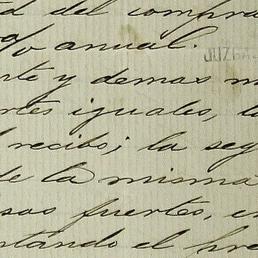 del compra
% anual.
JUZGA
rte y demas m
rtes iguales, la
recibo; la seg
de la misma
sos fuertes, en
rtando el pre